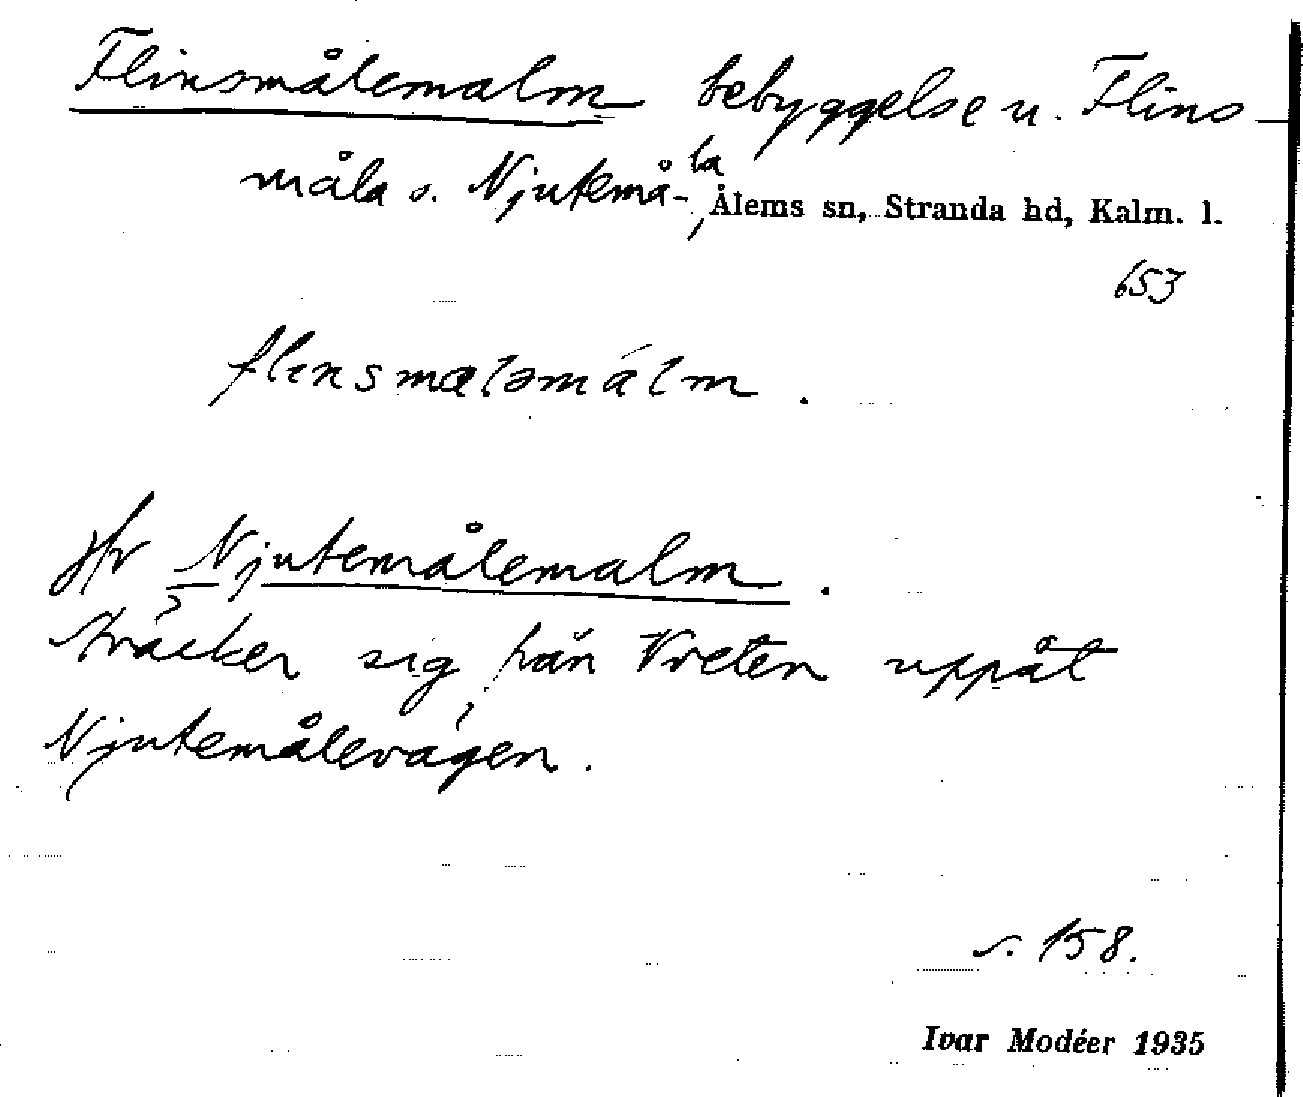 Flinsmålemalm bebyggelse u. Flins-
måla o. Njutemå-la, Ålems sn, Stranda hd, Kalm. l.
653
flinsmaləmálm.
Jfr Njutemålemalm.
Sträcker sig från Vreten uppåt
Njutemålevägen.
s. 158.
Ivar Modéer 1935